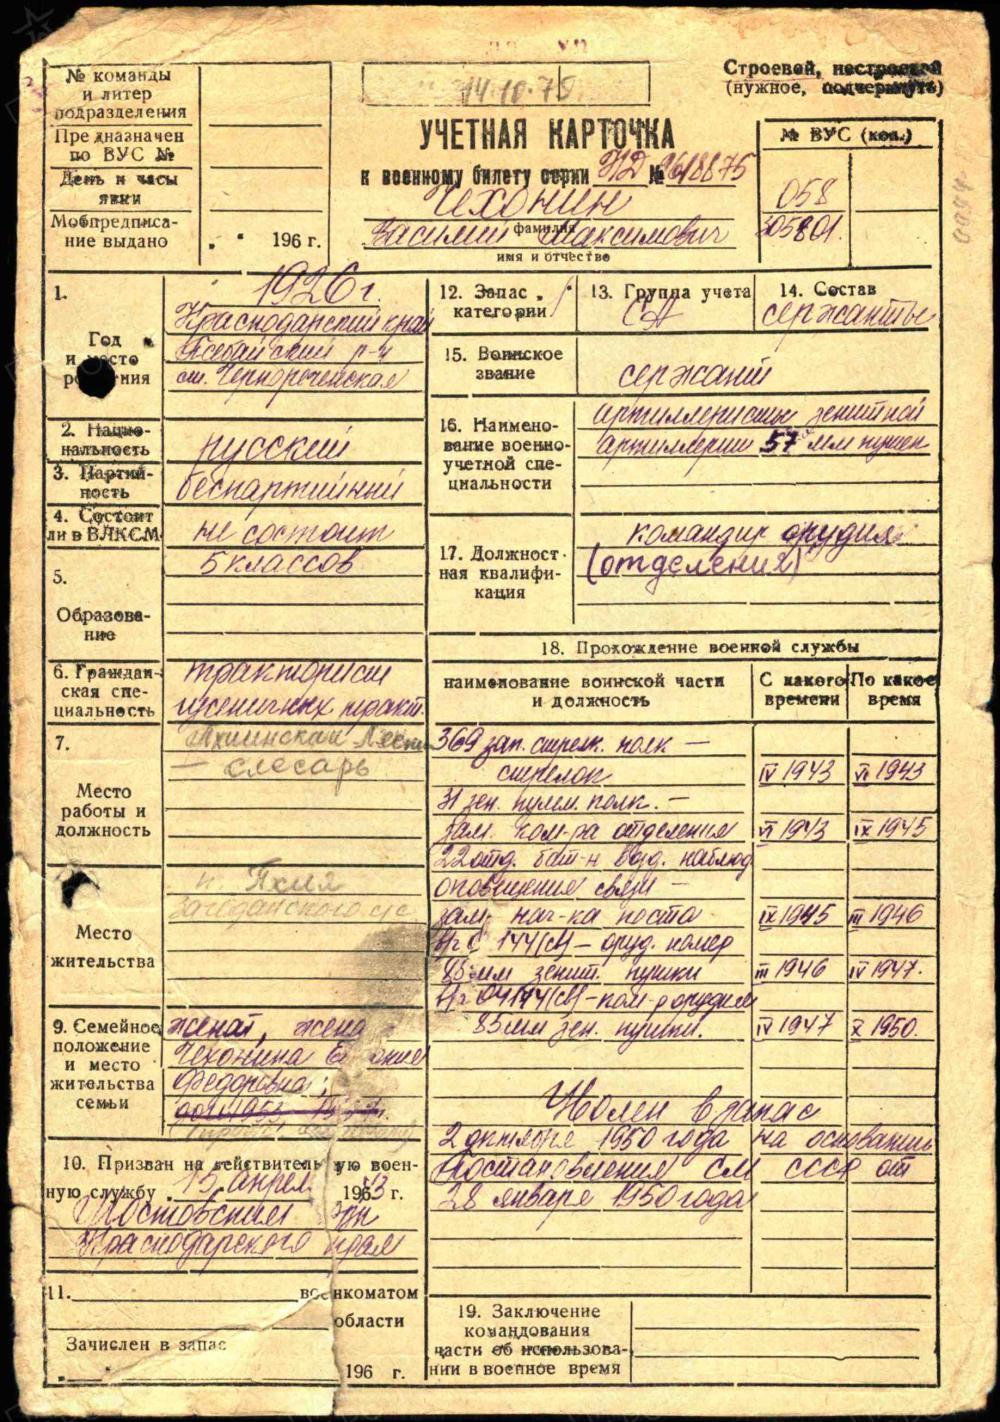 № команды
и литер
подразделения
Предназначен
по ВУС №
День и часы
явки
Мобпредписа-
ние выдано
196 г.
14.10.75
Строевой, нестроевой
(нужное, подчеркнуть)
УЧЕТНАЯ КАРТОЧКА
к военному билету серии НД № 9618875
Чехонин
фамилия
Василий Максимович
имя и отчество
№ ВУС (код.)
058
305801.
1.
Год
и место
рождения
1926 г.
Краснодарский край
р-н
ст. Чернореченская
2. Нацио-
нальность
русский
3. Партий-
ность
беспартийный
4. Состоит
ли в ВЛКСМ
не состоит
5.
Образова-
ние
5 классов
6. Граждан-
ская спе-
циальность
тракторист
гусеничных тракт.
7.
Место
работы и
должность
— слесарь
Место
жительства
п. Тахия
9. Семейное
положение
и место
жительства
семьи
женат, жена
Чехонина
Федоровна;
10. Призван на действительную воен-
ную службу 15 апрел. 1943 г.
Мостовским рвк
Краснодарского края
11. военкоматом
области
Зачислен в запас
196 г.
12. Запас
категории
1
13. Группа учета
СА
14. Состав
сержанты
15. Воинское
звание
сержант
16. Наимено-
вание военно-
учетной спе-
циальности
артиллеристы зенитной
артиллерии 57 мм пушек
17. Должност-
ная квалифи-
кация
командир орудия
(отделения)
18. Прохождение военной службы
наименование воинской части
и должность
С какого
времени
По какое
время
369 зап. стрелк. полк —
стрелок IV 1943 VI 1943
31 зен. пулем. полк. —
зам. ком-ра отделения VI 1943 IX 1945
22 отд. бат-н возд. наблюд
оповещения связи —
зам. нач-ка поста IX 1945 III 1946
144(св) — оруд. номер
85 мм зенит. пушки III 1946 IV 1947.
04144(св) — ком-р орудия
85 мм зен. пушки. IV 1947 X 1950.
Уволен в запас
2 октября 1950 года на основании
Постановления СМ СССР от
28 января 1950 года
19. Заключение
командования
части об использова-
нии в военное время